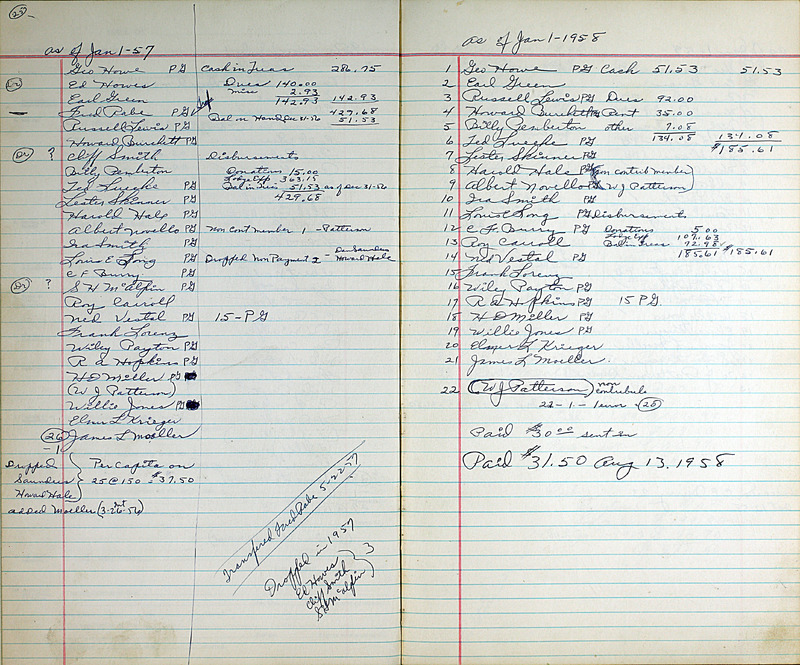 25
as of Jan 1-57
Geo Howe PG Cash in Treas 286.75
Dr Ed Howes Dues 140.00
Earl Green misc 2.93
142.93 142.93
— Fred Rabe PG 429.68
Russell Lewis PG Bal on Hand Dec 31-56 51.53
Howard Burkett PG
Dr ? Cliff Smith Disbursments
Billy Penberton Donations 15.00
Ted Lueghe PG Lodge Exp 363.15
Lester Skinner PG Bal in Treas 51.53 as of Dec 31-56
429.68
Harold Hale PG
Albert Novello PG Non Cont member 1 - Patterson
Ira Smith PG
Louis E Long PG Dropped Non Payment 2 - Saunders
Howard Hale
C F Burry PG
Dr ? S H McAlpin PG
Roy Carroll
Ned Vestal PG 15 - PG
Frank Lorenz
Wiley Payton PG
R A Hopkins PG
H D Miller PG
(W J Patterson)
Willie Jones PG
Elmer L Krieger
26 James L Moeller
- 1
Dropped
Saunders
Howard Hale
Per Capita on
25 @ 150 = $37.50
added Moeller (3-26-56)
Transfered Fred Rabe 5-22-57
Dropped in 1957
Ed Howes
Cliff Smith
S H McAlpin
3
as of Jan 1-1958
1 Geo Howe PG Cash 51.53 51.53
2 Earl Green
3 Russell Lewis PG Dues 92.00
4 Howard Burkett PG Rent 35.00
5 Billy Penberton other 7.08
6 Ted Lueghe PG 134.08 134.08
$185.61
7 Lester Skinner PG
8 Harold Hale PG non contrib member
9 Albert Novello PG W J Patterson
10 Ira Smith PG
11 Louis Long PG Disbursements
12 C F Burry PG Donations 5.00
13 Roy Carroll Lodge Exp 107.63
Bal in Treas 72.98
14 Ned Vestal PG 185.61 $185.61
15 Frank Lorenz
16 Wiley Payton PG
17 R A Hopkins PG 15 PG
18 H D Miller PG
19 Willie Jones PG
20 Elmer L Krieger
21 James L Moeller
22 (W J Patterson) non contribute
22 - 1 - 1
25
Paid $30.00 sent in
Paid $31.50 Aug 13, 1958